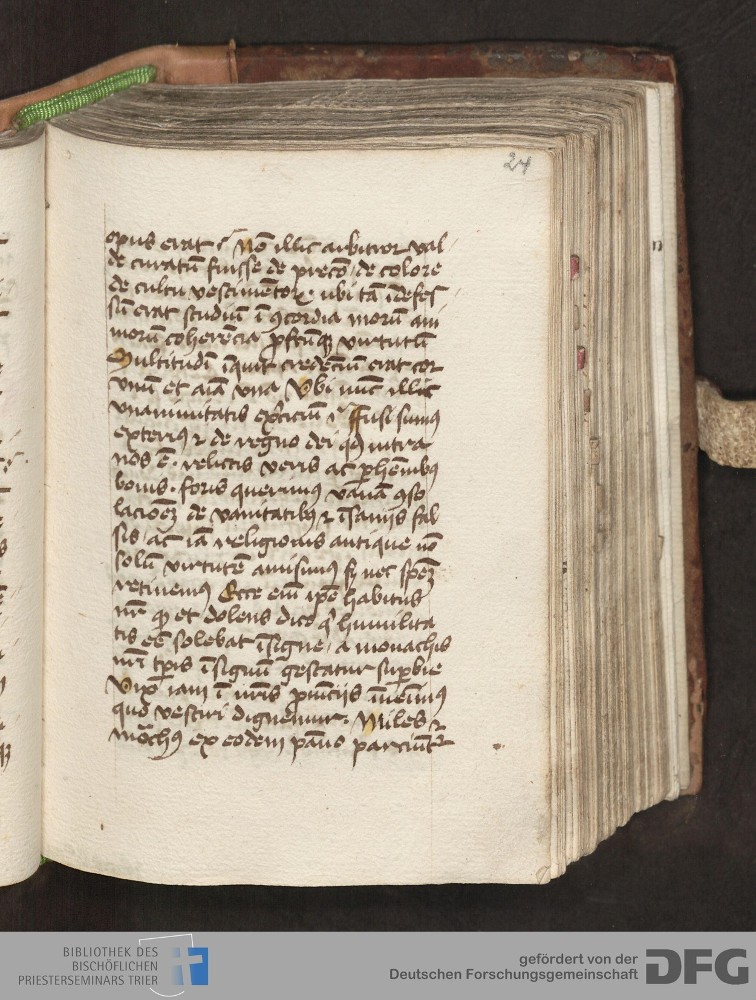 24
opus erat ? Nō illic arbitror val
de curatū fuisse de precō de colore
de cultu vestimentoꝝ. ubi tā īdefes
sū erat studiū ī ꝯcordia morū aīi
morū coherēcia ꝓfcūꝗ virtutū
Multitudī īquit credēciū erat cor
unū et aīa una Ubi nūc illic
unanimitatis exᵉciciū ? Fusi sumꝰ
exteriꝰ ⁊ de regno dei qđ intra
nos ē. relictis veris ac ꝑhēnibꝰ
bonis. foris querimꝰ vanā ꝯso
lacōeꝫ de vanitatibꝰ ⁊ īsaniis fal
sis ac iā religionis antique nō
solū virtutē amisimꝰ sꝫ nec spēꝫ
retinemꝰ Ecce eīm ipē habitus
nr̄ qđ et dolens dico qͥ humilita
tis eē solebat īsigne, a monachis
nr̄i tꝑis ī signū gestatur suꝑbie
Vix iam ī nr̄is ꝓuīciis īuēimꝰ
quo vestiri dignemur. Miles ⁊
mōchꝰ ex eodem pāno parciūtᷣ
BIBLIOTHEK DES
BISCHÖFLICHEN
PRIESTERSEMINARS TRIER
gefördert von der
Deutschen Forschungsgemeinschaft
DFG